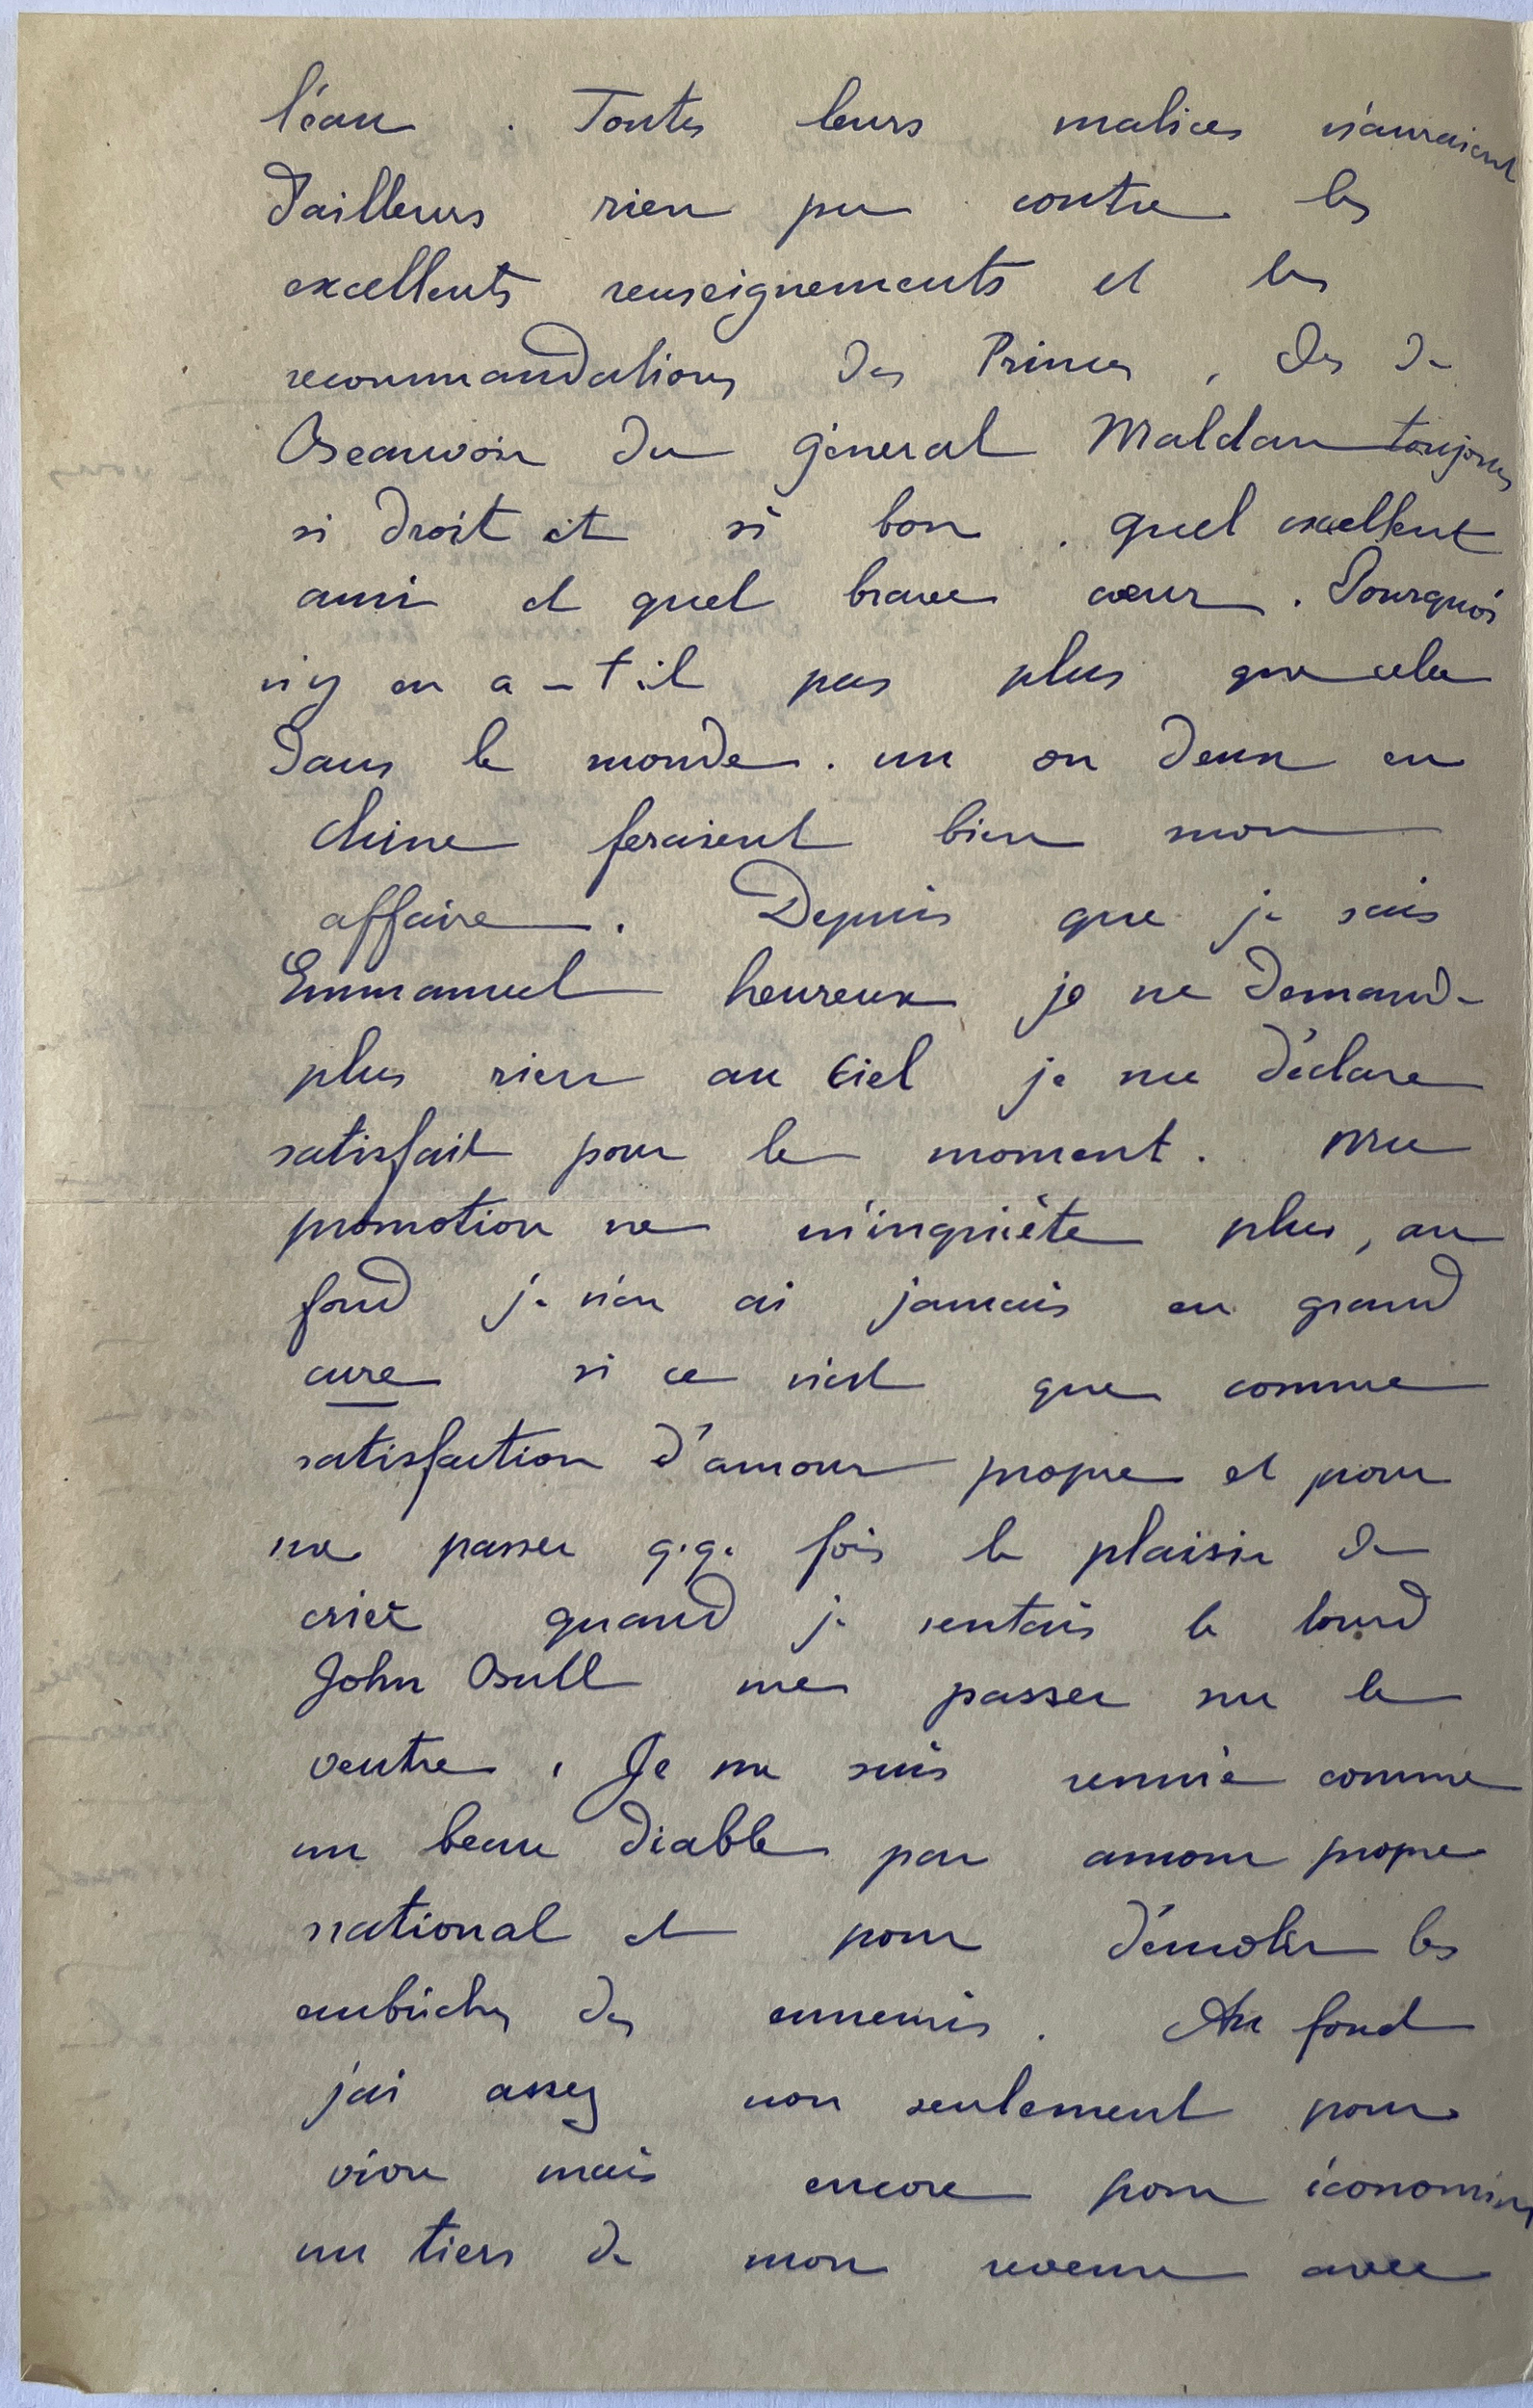 l'eau . Toutes leurs malices n'auraient
d'ailleurs rien pu contre les
excellents renseignements et les
recommandations des Princes, des de
Beauvoir du général Maldan toujours
si droit et si bon . quel excellent
ami et quel brave cœur . Pourquoi
n'y en a-t-il pas plus que cela
dans le monde . un ou deux en
Chine feraient bien mon
affaire . Depuis que je sais
Emmanuel heureux je ne demande
plus rien au Ciel je me déclare
satisfait pour le moment . Ma
promotion ne m'inquiète plus, au
fond je n'en ai jamais eu grand
cure si ce n'est que comme
satisfaction d'amour propre et pour
me passer q.q. fois le plaisir de
crier quand je sentais le lourd
John Bull me passer sur le
ventre . Je me suis remué comme
un beau diable par amour propre
national et pour démolir les
embûches des ennemis . Au fond
j'ai assez non seulement pour
vivre mais encore pour économiser
un tiers de mon revenu avec